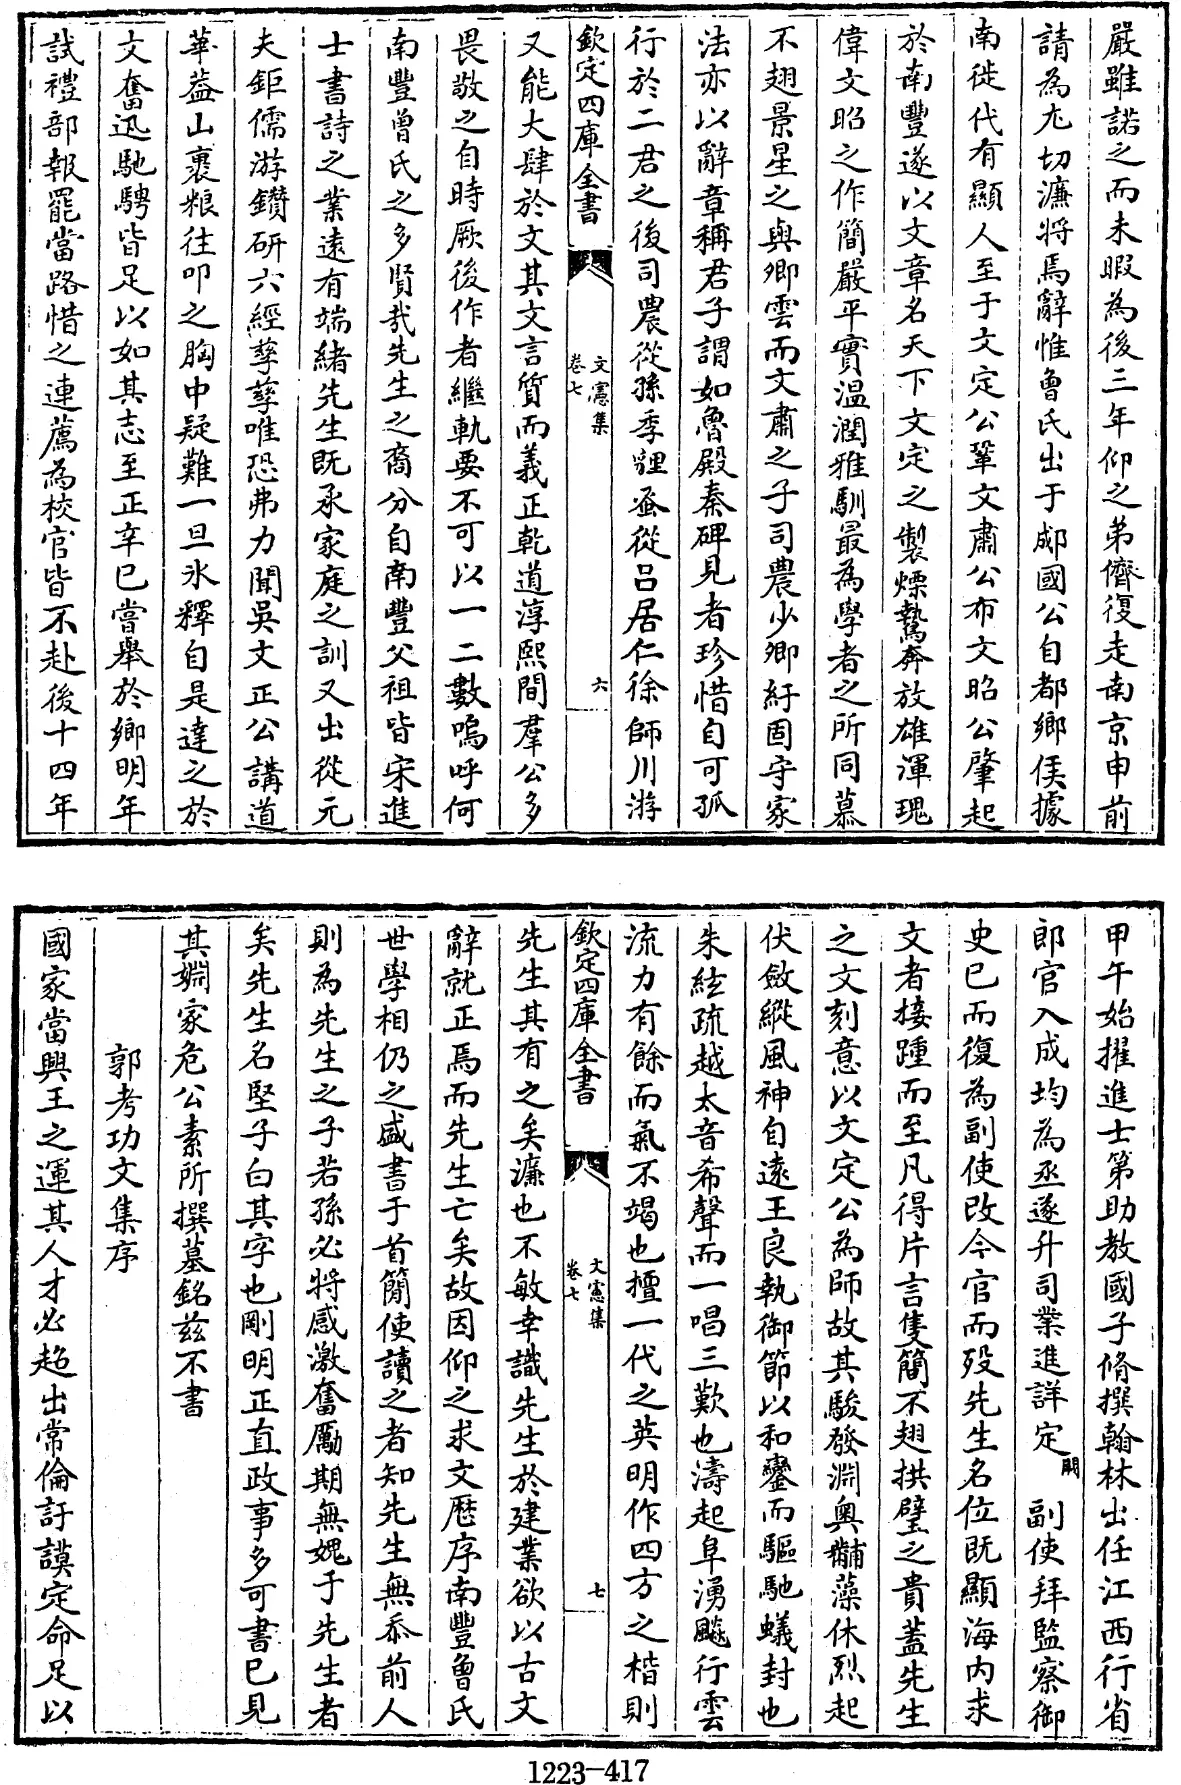 嚴雖諾之而未暇為後三年仰之弟儕復走南京申前
請為尤切濂將焉辭惟曾氏出于鄫國公自都鄉侯據
南徙代有顯人至于文定公鞏文肅公布文昭公肇起
於南豐遂以文章名天下文定之製煙驚奔放雄渾瑰
偉文昭之作簡嚴平實温潤雅馴最為學者之所同慕
不翅景星之與卿雲而文肅之子司農少卿紆固守家
法亦以辭章稱君子謂如魯殿秦碑見者珍惜自可孤
行於二君之後司農從孫季貍蚤從呂居仁徐師川游
欽定四庫全書
文憲集
卷七
六
又能大肆於文其文言質而義正乾道淳熙間羣公多
畏敬之自時厥後作者繼軌要不可以一二數嗚呼何
南豐曾氏之多賢哉先生之裔分自南豐父祖皆宋進
士書詩之業遠有端緒先生既承家庭之訓又出從元
夫鉅儒游鑽研六經孳孳唯恐弗力聞吳文正公講道
華葢山裹粮往叩之胸中疑難一旦氷釋自是達之於
文奮迅馳騁皆足以如其志至正辛巳嘗舉於鄉明年
試禮部報罷當路惜之連薦為校官皆不赴後十四年
甲午始擢進士第助教國子脩撰翰林出任江西行省
郎官入成均為丞遂升司業進詳定闕副使拜監察御
史已而復為副使改今官而歿先生名位既顯海内求
文者接踵而至凡得片言隻簡不翅拱璧之貴蓋先生
之文刻意以文定公為師故其駿發淵奥黼藻休烈起
伏斂縱風神自遠王良執御節以和鑾而驅馳蟻封也
朱絃疏越太音希聲而一唱三歎也濤起阜湧飈行雲
流力有餘而氣不竭也擅一代之英明作四方之楷則
欽定四庫全書
文憲集
卷七
七
先生其有之矣濂也不敏幸識先生於建業欲以古文
辭就正焉而先生亡矣故因仰之求文歷序南豐曾氏
世學相仍之盛書于首簡使讀之者知先生無忝前人
則為先生之子若孫必將感激奮厲期無媿于先生者
矣先生名堅子白其字也剛明正直政事多可書已見
其婣家危公素所撰墓銘兹不書
郭考功文集序
國家當興王之運其人才必超出常倫訏謨定命足以
1223-417